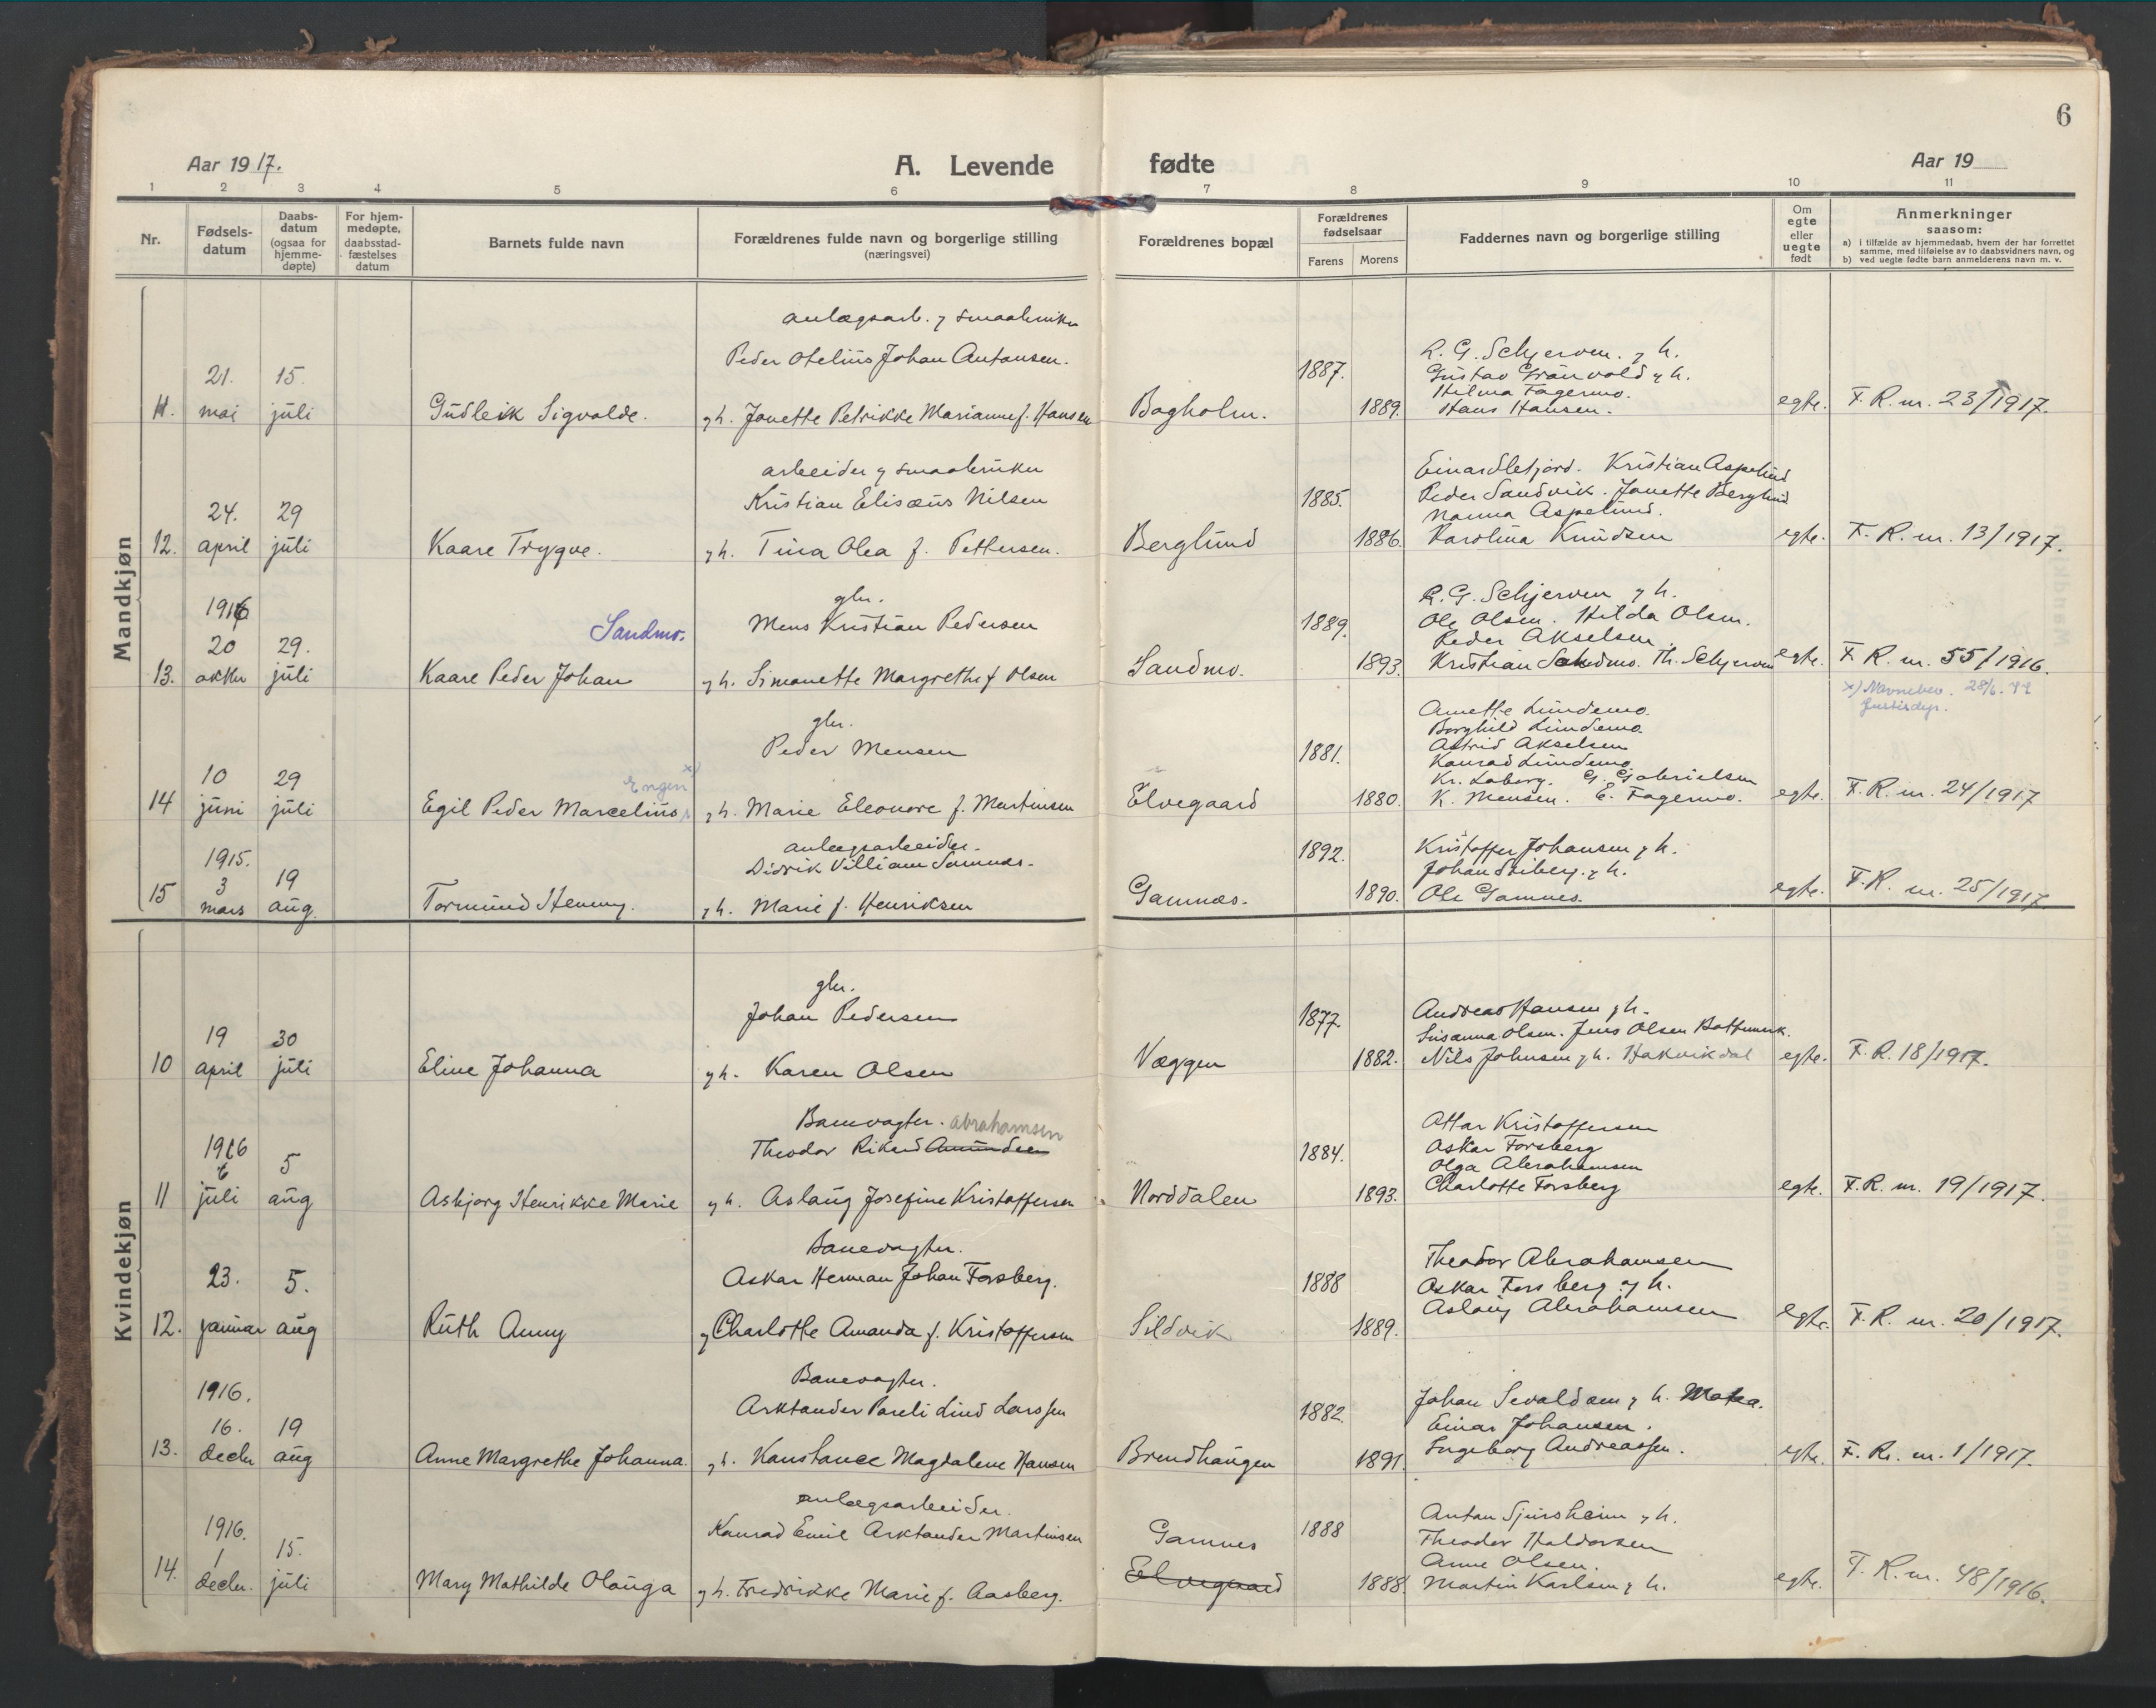 6
Aar 1917.
A. Levende
fødte
Aar 19
1 2 3 4 5 6 7 8 9 10 11
Nr.
Fødsels-
datum
Daabs-
datum
(ogsaa for
hjemme-
døpte)
For hjem-
medøpte,
daabsstad-
fæstelses
datum
Barnets fulde navn
Forældrenes fulde navn og borgerlige stilling
(næringsvei)
Forældrenes bopæl
Forældrenes
fødselsaar
Farens
Morens
Faddernes navn og borgerlige stilling
Om
egte
eller
uegte
født
Anmerkninger
saasom:
a) i tilfælde av hjemmedaab, hvem der har forrettet
samme, med tilføielse av to daabsvidners navn, og
b) ved uegte fødte barn anmelderens navn m. v.
Mandkjøn
anlægsarb. og smaabruker
Peder Otelius Johan Antonsen.
R. G. Schjerven. og h.
21. 15. 1887. Gustav Grönvold og h.
Hilma Fagermo.
11. mai juli Gudleik Sigvalde. og h. Jonette Petrikke Marianne f. Hansen Bogholm. 1889. Hans Hansen. egte. F. R. nr. 23/1917.
arbeider og smaabruker
Kristian Elisæus Nilsen
Einar Slefjord. Kristian Aspelund
24. 29 1885. Peder Sandvik. Jonette Berglund
Nanna Aspelund.
12. april juli Kaare Trygve. og h. Tina Olea f. Pettersen. Berglund 1886. Karolina Knudsen egte. F. R. nr. 13/1917.
gbr.
1916 Mens Kristian Pedersen
R. G. Schjerven og h.
20 29. Sandmo. 1889. Ole Olsen. Hilda Olsen.
Peder Akselsen.
13. oktbr juli Kaare Peder Johan og h. Simonette Margrethe f. Olsen Sandmo. 1893. Kristian Sandmo. Th. Schjerven egte. F. R. nr. 55/1916.
x) Navnebev. 28/6.
Justisdep.
gbr.
Peder Mensen
Anette Lundemo.
Borghild Lundemo.
1881. Astrid Akselsen
Konrad Lundemo
10 29 Engen x) Kr. Laberg. G. Gabrielsen
14 juni juli Egil Peder Marcelius og h. Marie Eleonore f. Martinsen Elvegaard 1880. K. Mensen. E. Fagermo. egte. F. R. nr. 24/1917
anlægsarbeider.
1915. Didrik Villiam Gamnæs. 1892. Kristoffer Johansen og h.
3 19 Johan Stiberg. og h.
15 mars aug. Tormund Henny. og h. Marie f. Henriksen Gamnæs. 1890. Ole Gamnes. egte. F. R. nr. 25/1917.
Kvindekjøn
gbr.
Johan Pedersen 1877. Andreas Hansen og h.
19 30 Susanna Olsen. Jens Olsen
10 april juli Eline Johanna og h. Karen Olsen Væggen 1882. Nils Johnsen og h. Hakvikdal egte. F. R. 18/1917.
Banevogter. Abrahamsen
1916 Theodor Rikard Amundsen 1884.
Ottar Kristoffersen
Oskar Forsberg
6 5 Olga Abrahamsen
11 juli aug Asbjørg Henrikke Marie og h. Aslaug Josefine Kristoffersen Norddalen 1893. Charlotte Forsberg egte. F. R. nr. 19/1917.
Banevogter.
Oskar Herman Johan Forsberg.
Theodor Abrahamsen
23. 5. 1888 Oskar Forsberg og h.
Aslaug Abrahamsen
12. januar aug Ruth Anny og Charlotte Amanda f. Kristoffersen Sildvik 1889. egte. F. R. nr. 20/1917.
Banevogter.
1916. Arktander Pareli Lind Larssen 1882.
Johan Sevaldsen og h.
16. 19 Einar Johansen.
13. decbr aug Anne Margrethe Johanna. og h. Konstance Magdalene Hansen Brendhaugen 1891. Ingeborg Andreassen. egte. F. R. nr. 1/1917.
anlægsarbeider.
1916. Konrad Emil Arktander Martinsen Gamnes 1888
Anton Sjursheim og h.
Theodor Haldorsen
1 15. Anne Olsen.
14. decbr. juli Mary Mathilde Olauga og h. Fredrikke Marie f. Aasberg. Elvegaard 1888. Martin Karlsen og h. egte. F. R. nr. 48/1916.